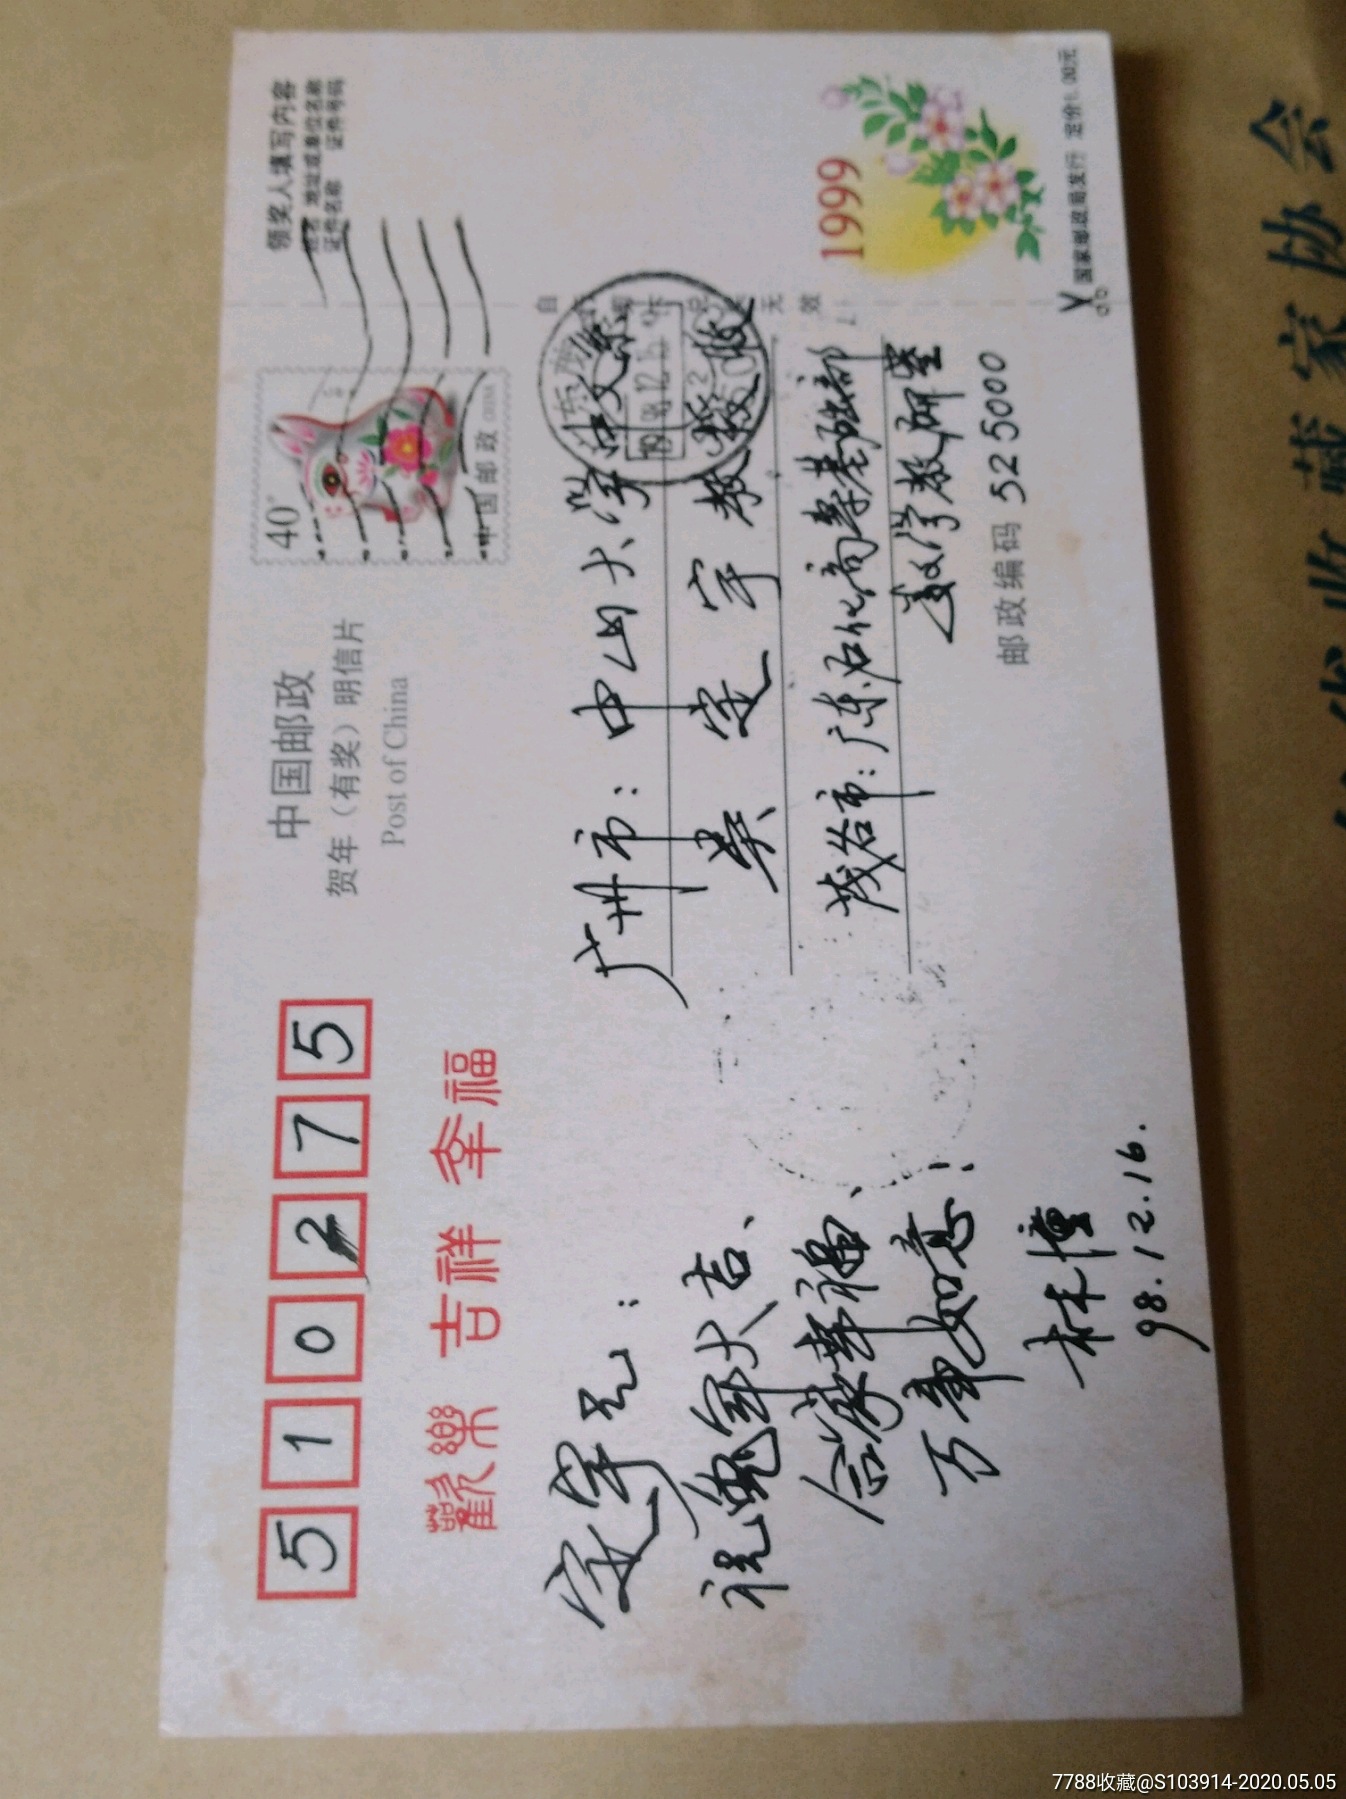 510275
中国邮政
贺年（有奖）明信片
Post of China
40
中国邮政 CHINA
领奖人填写内容
姓名 地址或单位名称
证件名称 证件号码
歡樂 吉祥 幸福
广州市：中山大学中文系
吴定宇教授收
茂名市：广东石化高专基础部
文学教研室
邮政编码 525000
定宇兄：
祝兔年大吉、
合家幸福、
万事如意！
98.12.16.
1999
国家邮政局发行 定价1.00元
收藏家协会
7788收藏@S103914-2020.05.05